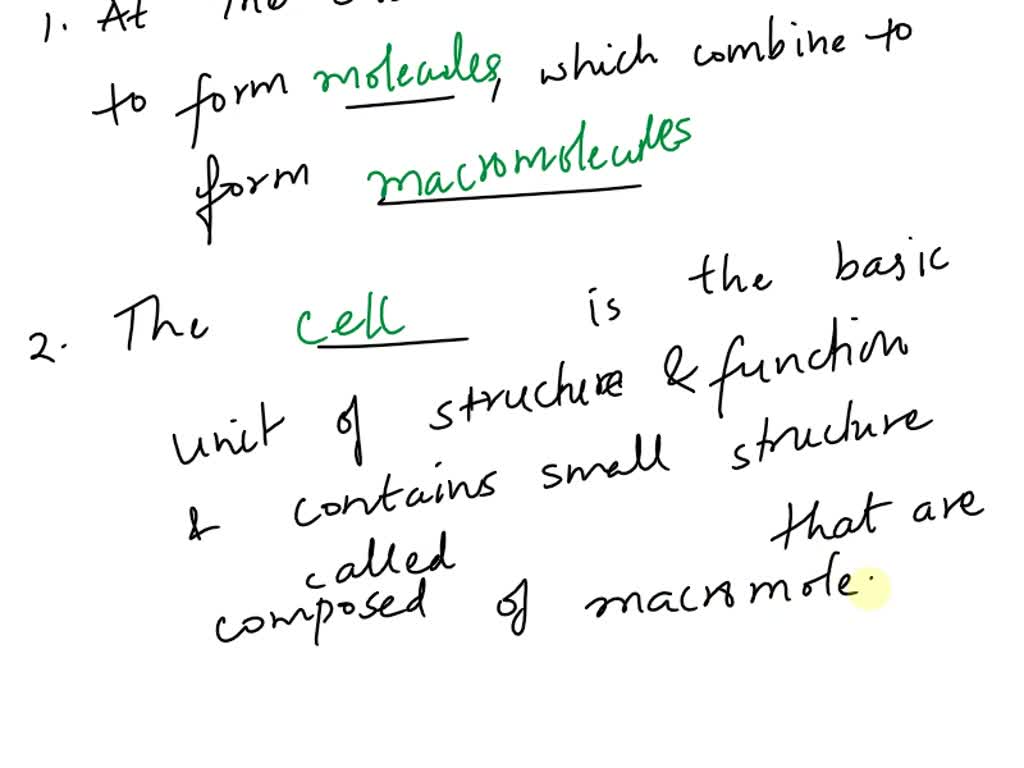 1. At the
to form molecules, which combine to
form macromolecules
2. The cell is the basic
unit of structure & function
& contains small structure
called that are
composed of macromole